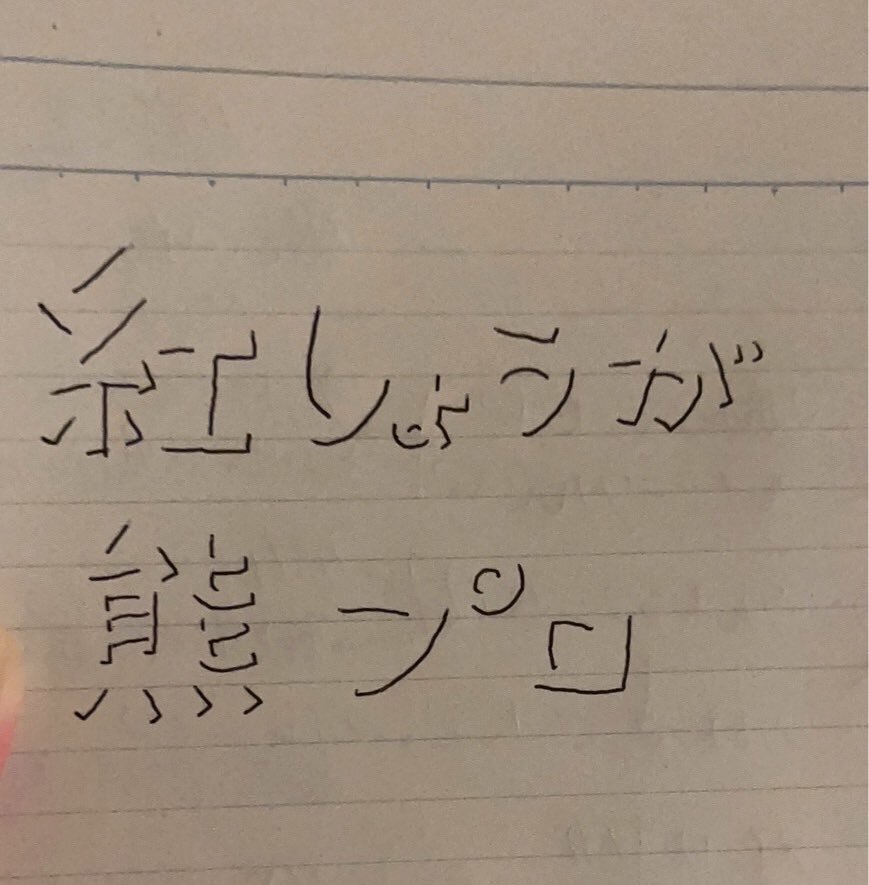 紅しょうが
熊プロ